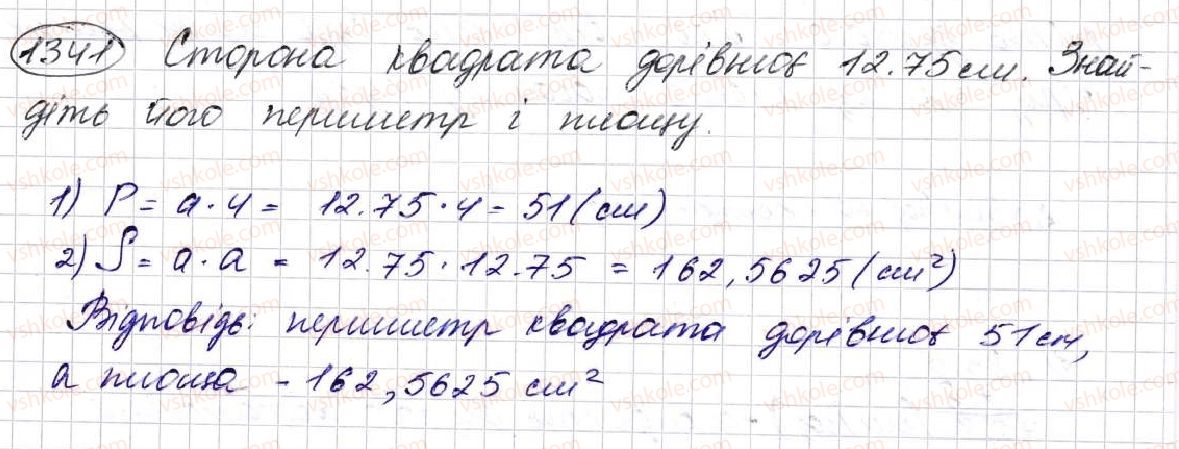 1341 Сторона квадрата дорівнює 12.75 см. Знай-
діть його периметр і площу.
1) P = a · 4 = 12.75 · 4 = 51 (см)
2) S = a · a = 12.75 · 12.75 = 162,5625 (см²)
Відповідь: периметр квадрата дорівнює 51 см,
а площа - 162,5625 см²